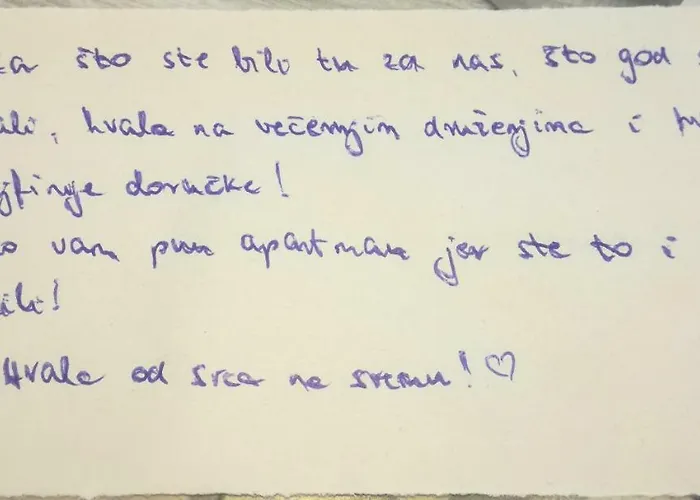 za što ste bilo tu za nas, što god
ali, hvala na večernjim druženjima i
finije doručke!
vam pun apartman jer ste to i
ili!
Hvala od srca na svemu! ♡